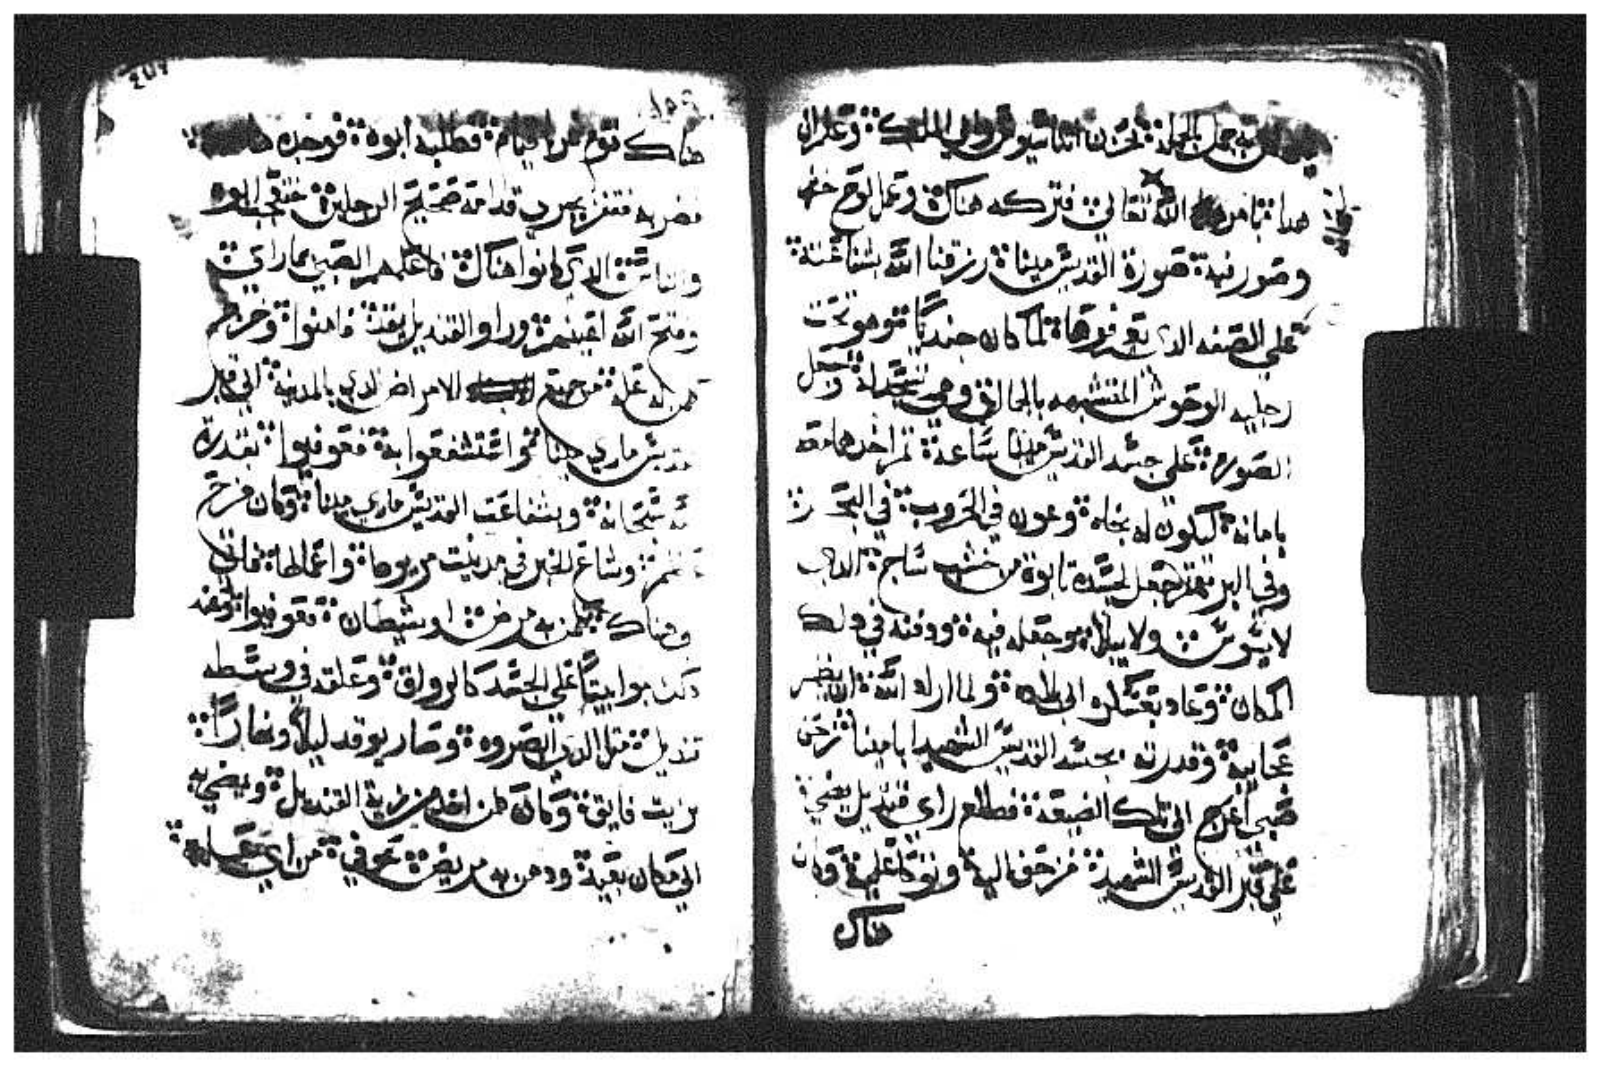 جمل الجملة فحزن اتناسيوس والي الملك وعلم ان
هدا بامر الله تعالي فتركه هناك وعمل لوح خشب
وصور فيه صورة القديس مينا رزقنا الله بشفاعته
علي الصفه الدي يعرفوها لما كان جنديا وهو تحت
رجليه الوحوش المتشبهه بالجمال وهي ساجدة وجعل
الصورة علي جسد القديس مينا ساعة تم اخدها معه
بامانه ليكون له نجاه وعون في الحروب في البحر
وفي البر تمانه جعل لجسده تابوة من خشب ساج الدي
لا يسوس ولا يبلا وجعله فيه ودفنه في دلك
المكان وعاد بعسكره الي بلده ولما اراد الله ان يظهر
عجايبه وقدرته بجسد القديس الشهيد ابا مينا زحف
صبي اعرج الي تلك الضيعة فطلع راي قنديل يضي
علي قبر القديس الشهيد فزحف اليه وتوكا عليه وكان
هناك
هناك نوم قيام فطلبه ابوه فوجده هناك
فضربه فنفز يجري قدامه صحيح الرجلين فتعجب ابوه
والناس الدي كانوا هناك فاعلمهم الصبي بما راي
وفتح الله اعينهم وراوا القنديل يقد فامنوا وخرج
كمن له علة من جميع الامراض الدي بالمدينة الي قبر
القديس ماري مينا واستشفعوا به فعوفيوا بقدرة
الله سبحانه وبشفاعت القديس ماري مينا وكان فرح
عظيم وشاع الخبر في مدينت مريوط واعمالها فاتي
وهناك كلمن به مرض او شيطان فعوفيوا
بنوا بيتا علي الجسد كالرواق وعلقه في وسطه
قنديل متل الدي ابصروه وصار يوقد ليلا ونهارا
بزيت فايق وكان كلمن اخد من زيت القنديل ويمضي به
الي مكان بعيد ودهن به مريض عوفي من اي علة